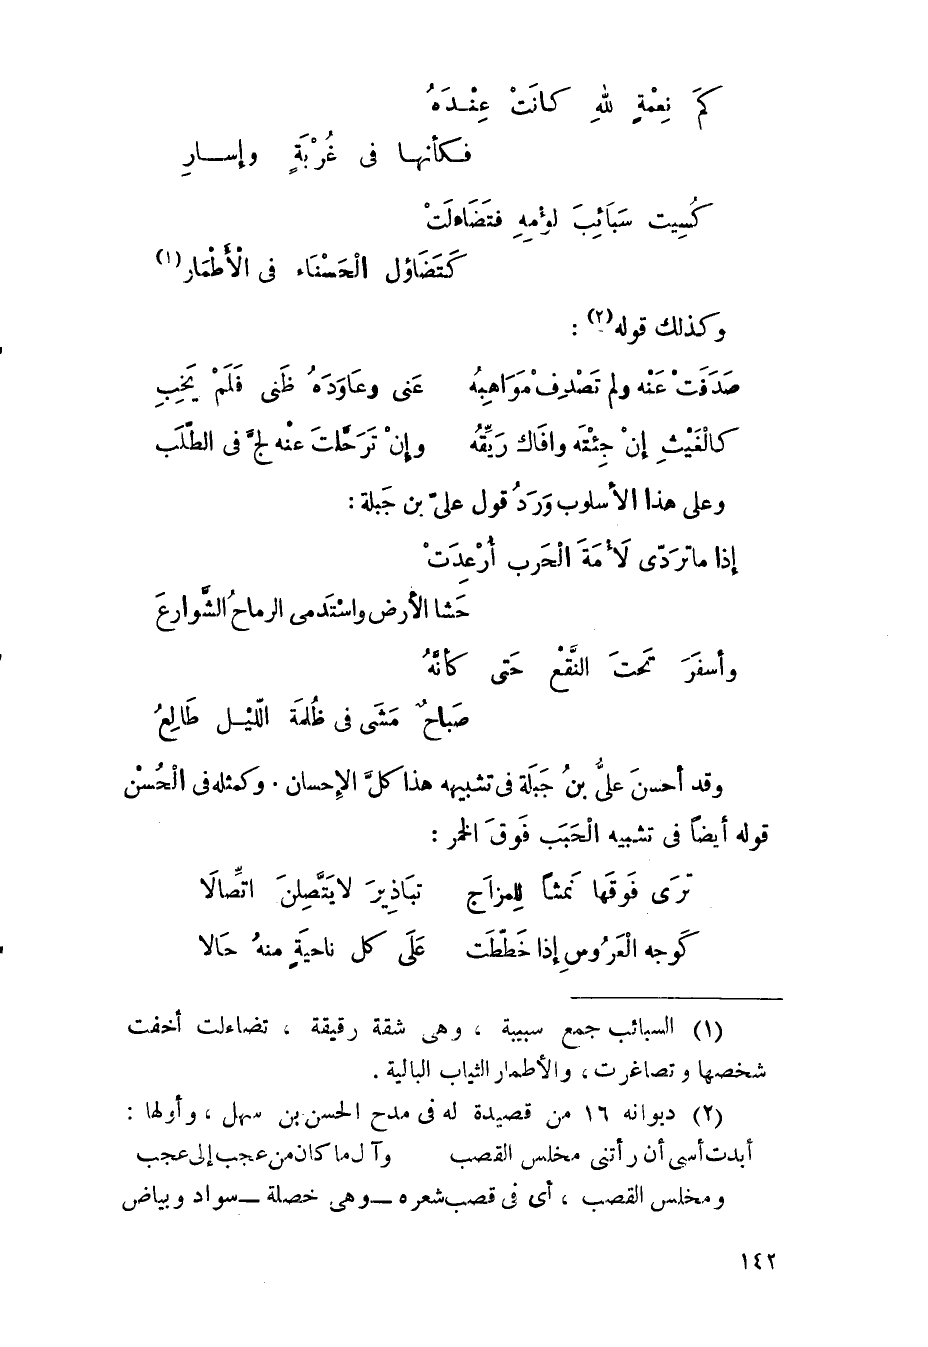 كَمَ نِعْمةٍ للهِ كانَتْ عِنْـدَهُ
فـكأنهـا فى غُرْبَةٍ وإسـارِ
كُسِيت سَبَائِبَ لؤمِهِ فتَضَاءلَتْ
كَتَضَاؤل الْحَسْنَاء فى الْأَطْمَار(١)
وكذلك قوله(٢) :
صَدَفَتْ عَنْه ولم تَصْدِفْ مَوَاهِبُه عَنى وعَاوَدَهُ ظَنى فَلَمْ يَخِبِ
كالْغَيْثِ إنْ جِئْتَه وافَاك رَيِّقُهُ وإنْ تَرَحَّلتَ عنْه لجَّ فى الطَّلَب
وعلى هذا الأسلوب وَرَدُ قول علىّ بن جَبلة :
إذا ماتردَّى لَأمَةَ الْحَرب أُرْعِدَتْ
حَشا الأرض واسْتَدمى الرماحُ الشَّوارعَ
وأسفرَ تحتَ النَّقْع حَتى كأنَّهُ
صَبَاحٌ مَشَى فى ظُلمَة اللَّيْـل طَالِعُ
وقد أحسنَ علىُّ بنُ جَبَلَة فى تشبيهه هذا كلَّ الإحسان . وكمثله فى الْحُسْن
قوله أيضاً فى تشبيه الْحَبَب فَوقَ الخمر :
تَرَى فَوقَها نَمشاً لِلمزاَج تبَاذِيرَ لايَتَّصِلنَ اتِّصالَا
كَوجه الْعَرُوسِ إذا خَطَّطَت عَلَى كل ناحيَةٍ منهُ حَالا
(١) السبائب جمع سبيبة ، وهى شقة رقيقة ، تضاءلت أخفت
شخصها وتصاغرت ، والأطمار الثياب البالية .
(٢) ديوانه ١٦ من قصيدة له فى مدح الحسن بن سهل ، وأولها :
أبدت أسى أن رأتنى مخلس القصب وآل ما كان من عجب إلى عجب
ومخلس القصب ، أى فى قصب شعره — وهى خصلة — سواد وبياض
١٤٢